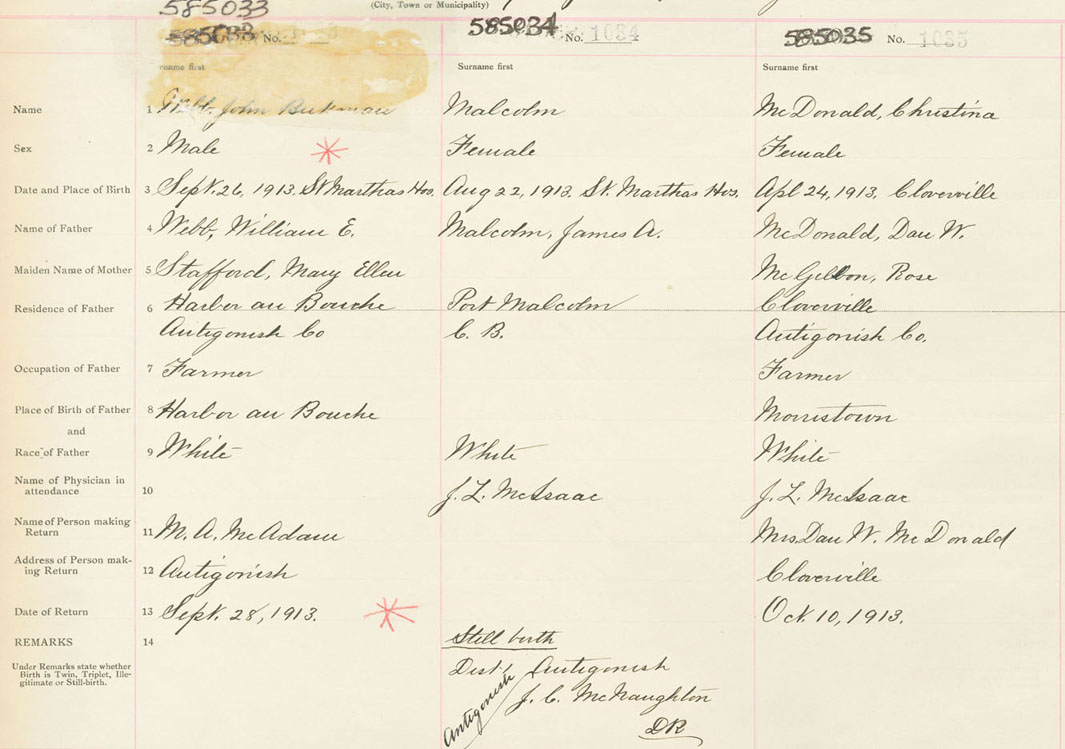 585033
(City, Town or Municipality)
585033 No. 585034 No. 1034 585035 No. 1035
Surname first Surname first
Name 1 Webb, John Malcolm McDonald, Christina
Sex 2 Male Female Female
Date and Place of Birth 3 Sept. 26, 1913. St Marthas Hos. Aug 22, 1913. St. Marthas Hos. Apl 24, 1913. Cloverville
Name of Father 4 Webb, William E. Malcolm, James A. McDonald, Dan W.
Maiden Name of Mother 5 Stafford, Mary Ellen Rose
Residence of Father 6 Harbor au Bouche Port Malcolm Cloverville
Antigonish Co C. B. Antigonish Co.
Occupation of Father 7 Farmer Farmer
Place of Birth of Father 8 Harbor au Bouche Morristown
and
Race of Father 9 White White White
Name of Physician in
attendance 10 J. L. McIsaac J. L. McIsaac
Name of Person making
Return 11 M. A. McAdam Mrs. Dan W. McDonald
Address of Person mak-
ing Return 12 Antigonish Cloverville
Date of Return 13 Sept. 28, 1913. Oct. 10, 1913.
REMARKS 14 Still birth
Under Remarks state whether
Birth is Twin, Triplet, Ille-
gitimate or Still-birth.
Dist. Antigonish
Antigonish J. C. McNaughton
DR